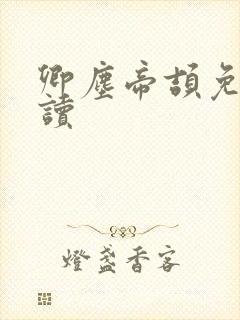 卿塵帝頡免
讀
燈盞香客